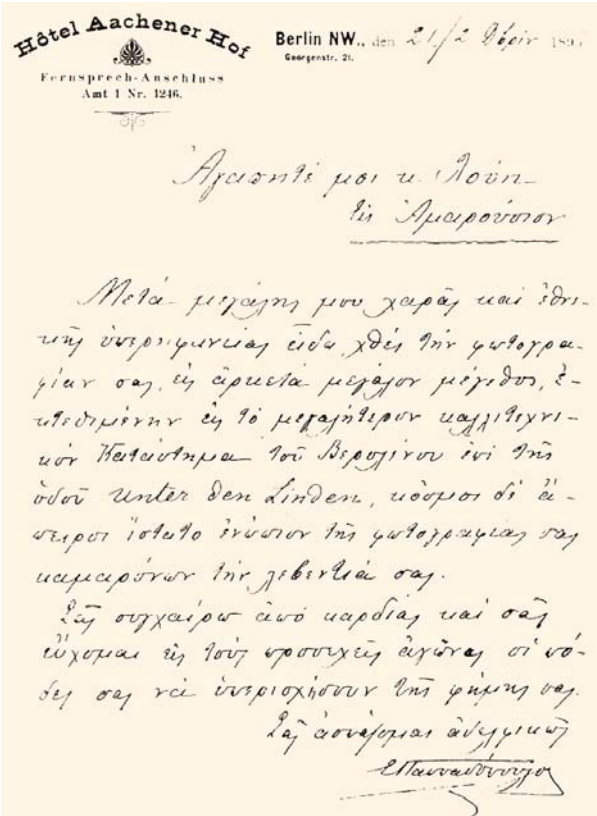 Hôtel Aachener Hof
Fernsprech-Anschluss
Amt I Nr. 1246.
Berlin NW., den 21/2 189
Georgenstr. 21.
Ἀγαπητέ μοι κ. Λούη
εἰς Ἀμαρούσιον
Μετὰ μεγάλης μου χαρᾶς καὶ ἐθνι-
κῆς ὑπερηφανείας εἶδα χθὲς τὴν φωτογρα-
φίαν σας, εἰς ἀρκετὰ μεγάλον μέγεθος, ἐ-
κτεθιμένην εἰς τὸ μεγαλήτερον καλλιτεχνι-
κὸν Κατάστημα τοῦ Βερολίνου ἐπὶ τῆς
ὁδοῦ Unter den Linden, κόσμος δὲ ἄ-
πειρος ἵστατο ἐνώπιον τῆς φωτογραφίας σας
καμαρόνων τὴν λεβεντιά σας.
Σᾶς συγχαίρω ἀπὸ καρδίας καὶ σᾶς
εὔχομαι εἰς τοὺς προσεχεῖς ἀγῶνας οἱ πό-
δες σας νὰ ὑπερισχύσουν τῆς φήμης σας.
Σᾶς ἀσπάζομαι ἀδελφικῶς